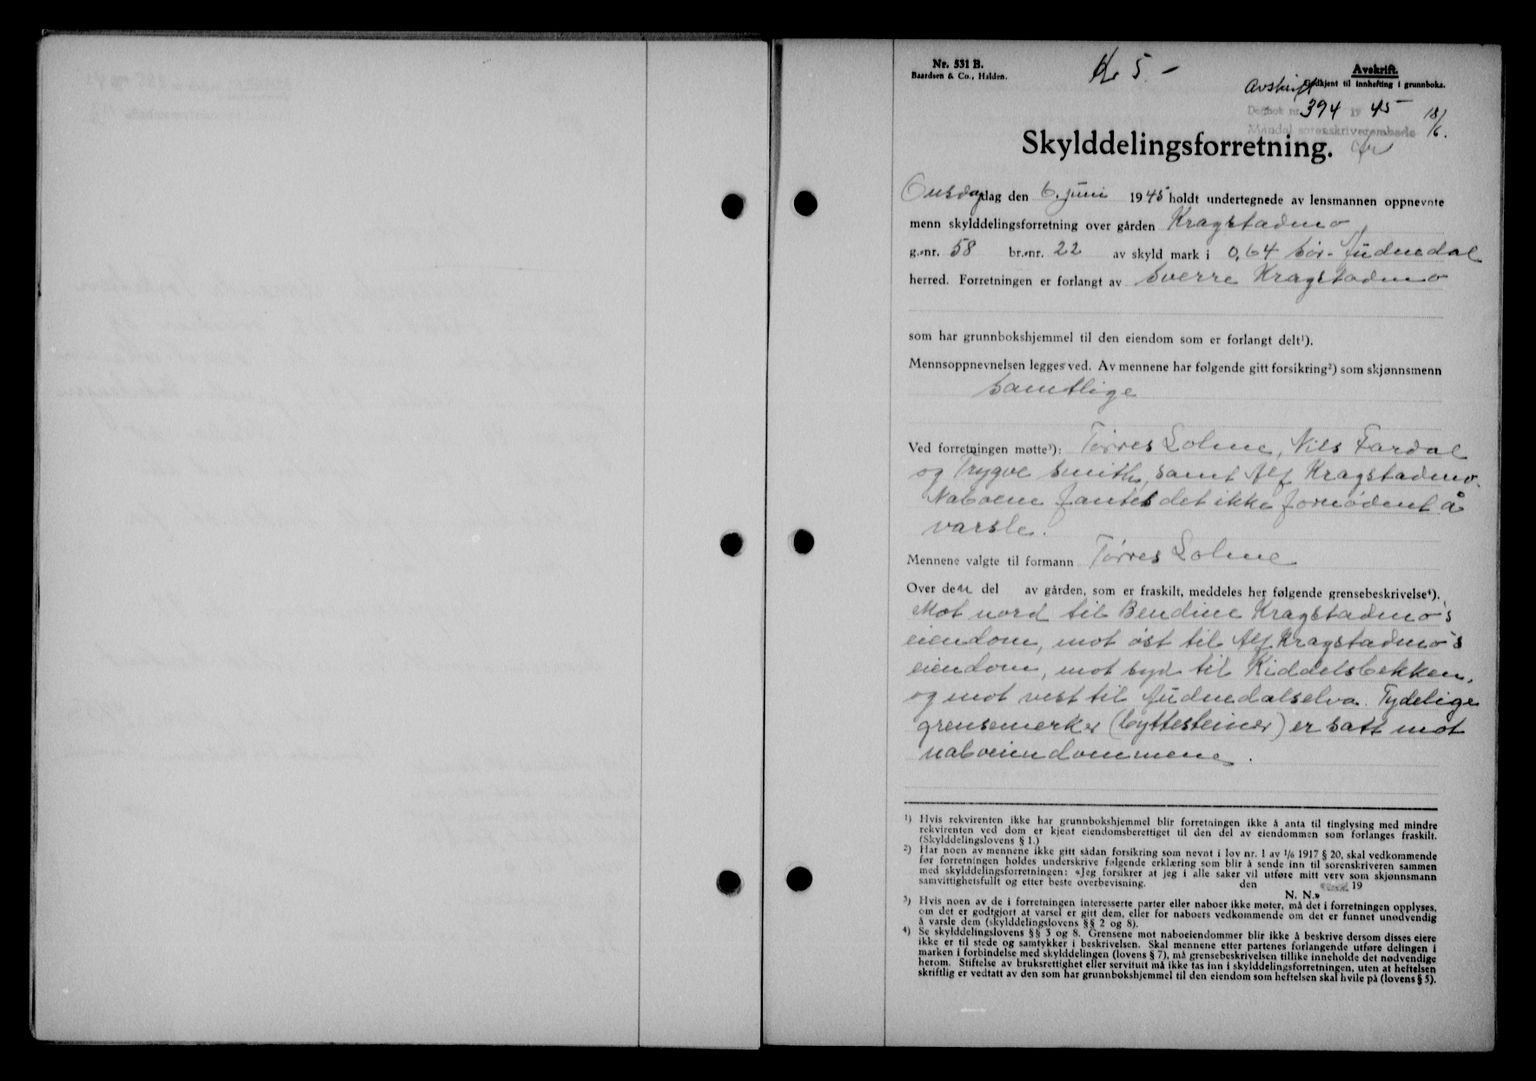 Nr. 531 B.
Baardsen & Co., Halden.
Kr 5.-
Avskrift.
Avskrift
Godkjent til innhefting i grunnboka.
Dagbok nr. 394 1945 18/6.
Mandal sorenskriverembede
Skylddelingsforretning.
Onsdag dag den 6. juni 1945 holdt undertegnede av lensmannen oppnevnte
menn skylddelingsforretning over gården Kragstadmo,
g.-nr. 58 br.-nr. 22 av skyld mark i 0,64 Sør-Audnedal
herred. Forretningen er forlangt av Sverre Kragstadmo
som har grunnbokshjemmel til den eiendom som er forlangt delt¹).
Mennsoppnevnelsen legges ved. Av mennene har følgende gitt forsikring²) som skjønnsmenn
Samtlige
Ved forretningen møtte³): Tørres Lohne, Nils Fardal
og Trygve Smith, samt Alf Kragstadmo.
Naboene fantes det ikke fornødent å
varsle.
Mennene valgte til formann Tørres Lohne
Over den del av gården, som er fraskilt, meddeles her følgende grensebeskrivelse⁴).
Mot nord til Bendine Kragstadmo's
eiendom, mot øst til Alf Kragstadmo's
eiendom, mot syd til Kiddelsbekken,
og mot vest til Audnedalselva. Tydelige
grensemerker (byttesteiner) er satt mot
naboeiendommene.
¹) Hvis rekvirenten ikke har grunnbokshjemmel blir forretningen ikke å anta til tinglysing med mindre
rekvirenten ved dom er kjent eiendomsberettiget til den del av eiendommen som forlanges fraskilt.
(Skylddelingslovens § 1.)
²) Har noen av mennene ikke gitt sådan forsikring som nevnt i lov nr. 1 av 1/6 1917 § 20, skal vedkommende
før forretningen holdes underskrive følgende erklæring som blir å sende inn til sorenskriveren sammen
med skylddelingsforretningen: «Jeg forsikrer at jeg i alle saker vil utføre mitt verv som skjønnsmann
samvittighetsfullt og etter beste overbevisning. den 19
N. N.»
³) Hvis noen av de i forretningen interesserte parter eller naboer ikke møter, må det i forretningen opplyses,
om det er godtgjort at varsel er gitt dem, eller for naboers vedkommende om det er funnet unødvendig
å varsle dem (skylddelingslovens §§ 2 og 8).
⁴) Se skylddelingslovens §§ 3 og 8. Grensene mot naboeiendommer blir ikke å beskrive dersom disses eiere
ikke er til stede og samtykker i beskrivelsen. Skal mennene etter partenes forlangende utføre delingen i
marken i forbindelse med skylddelingen (lovens § 7), må grensebeskrivelsen tillike inneholde det nødvendige
herom. Stiftelse av bruksrettighet eller servitutt må ikke tas inn i skylddelingsforretningen, uten at heftelsen
skriftlig er vedtatt av den som har grunnbokshjemmel til den eiendom som heftelsen skal hvile på (lovens § 5).